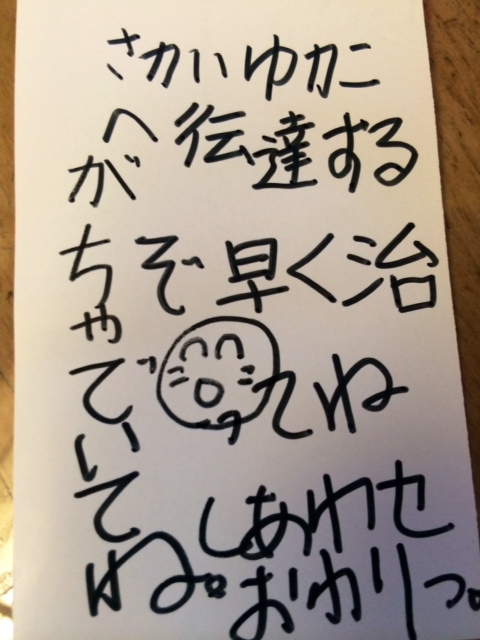 さかいゆかこ
へ伝達する
ぞ早く治
ってね
がちゃでいてね。
しあわせ
おわりっ。